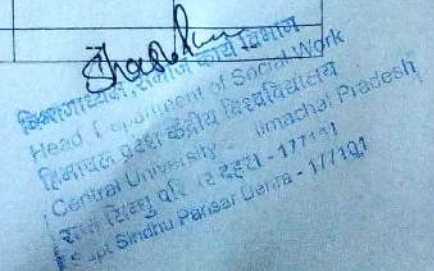 विभागाध्यक्ष, समाज कार्य विभाग
Head Department of Social Work
हिमाचल प्रदेश केंद्रीय विश्वविद्यालय
Central University Himachal Pradesh
सप्त सिन्धु परिसर देहरा - 177101
Sapt Sindhu Parisar Dehra - 177101